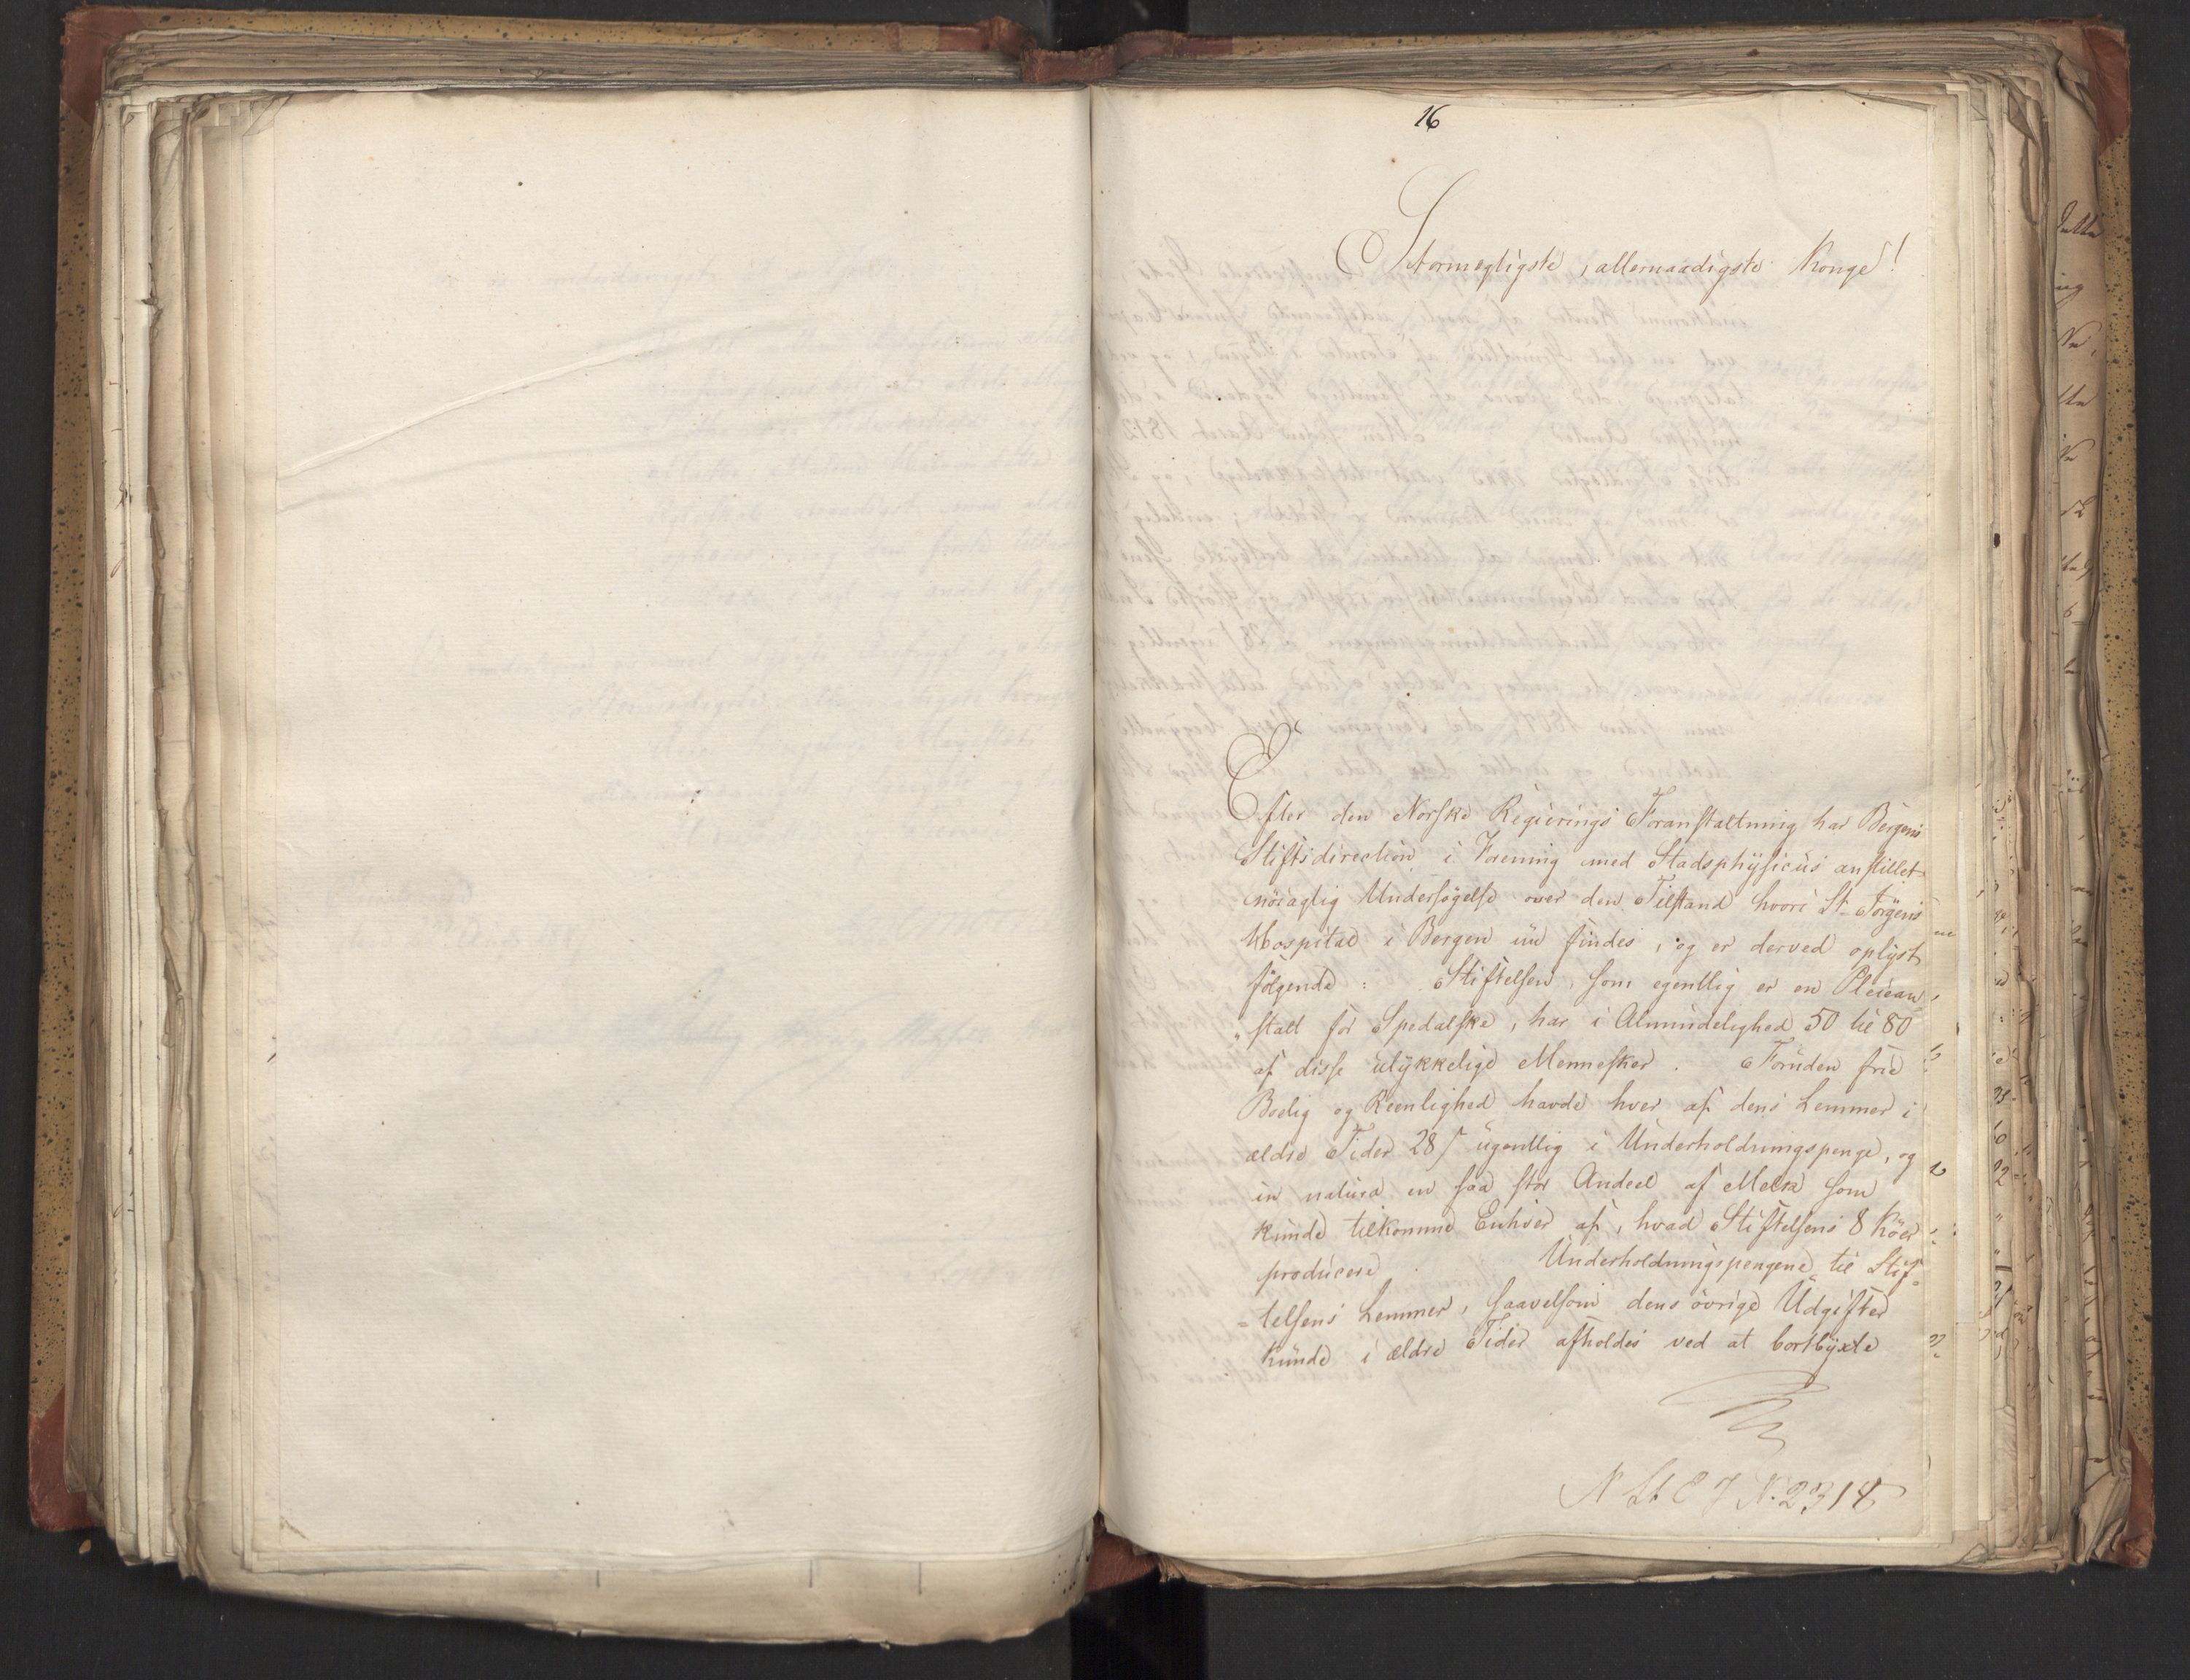 16
Stormegtigste, allernaadigste Konge!
Efter den Norske Regierings Foranstaltning har Bergens
Stiftsdirection i Forening med Stadsphysicus anstillet
nöiagtig Undersögelse over den Tilstand hvori St. Jörgens
Hospital i Bergen nu findes, og er derved oplyst
fölgende: Stiftelsen, som egentlig er en Pleiean-
„stalt for Spedalske, har i Almindelighed 50 til 80
af disse ulykkelige Mennesker. Foruden frie
Boelig og Reenlighed havde hver af dens Lemmer i
ældre Tider 28 s ugentlig i Underholdningspenge, og
in natura en saa stor Andeel af Melk som
kunde tilkomme Enhver af, hvad Stiftelsens 8 Köer
producere. Underholdningspengene til Stif-
-telsens Lemmer, saavelsom dens övrige Udgifter
kunde i ældre Tider afholdes ved at bortbyxle
N St E J N. 2318